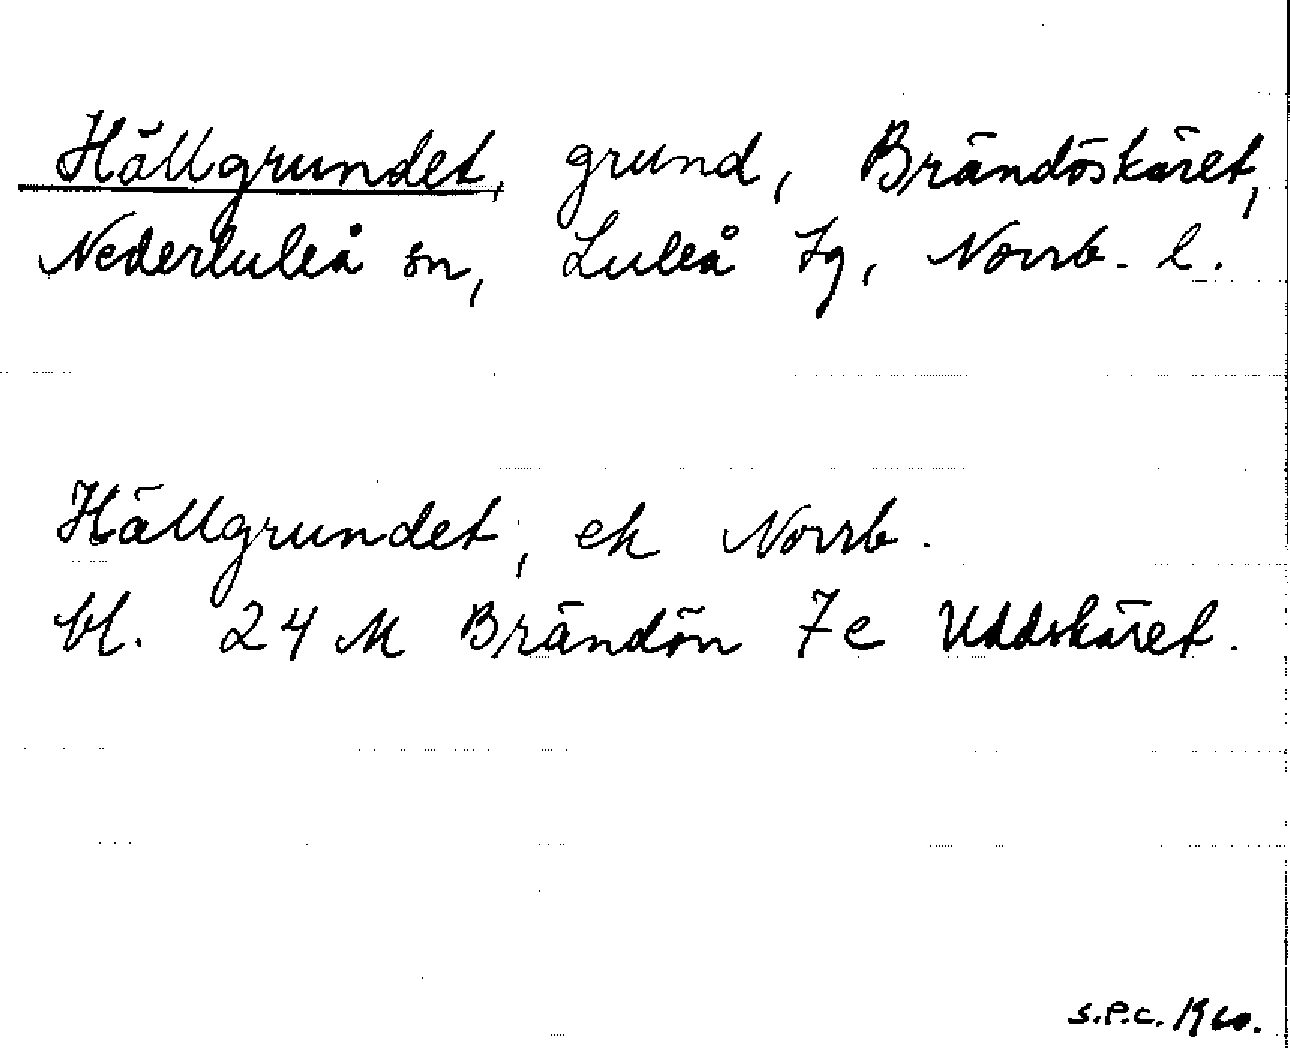 Hällgrundet, grund, Brändöskäret,
Nederluleå sn, Luleå tg, Norrb. l.
Hällgrundet, ek Norrb.
bl. 24 M Brändön 7e Uddskäret.
S.P.C. 1960.